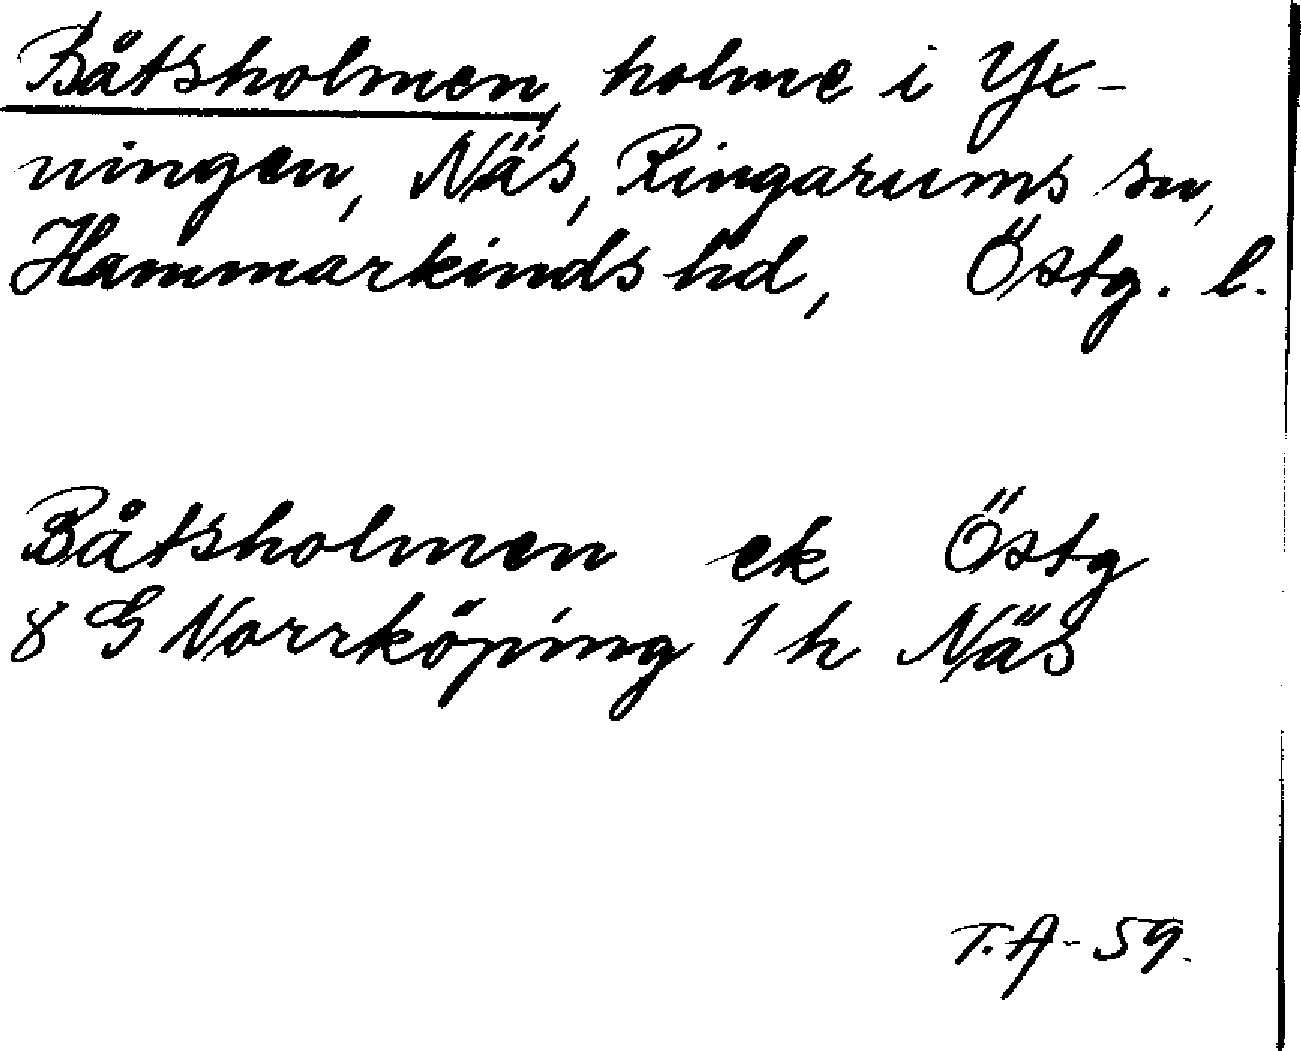 Båtsholmen, holme i Yx-
ningen, Näs, Ringarums sn,
Hammarkinds hd, Östg. l.
Båtsholmen ek Östg
8 G Norrköping 1 h Näs
T.A-59.